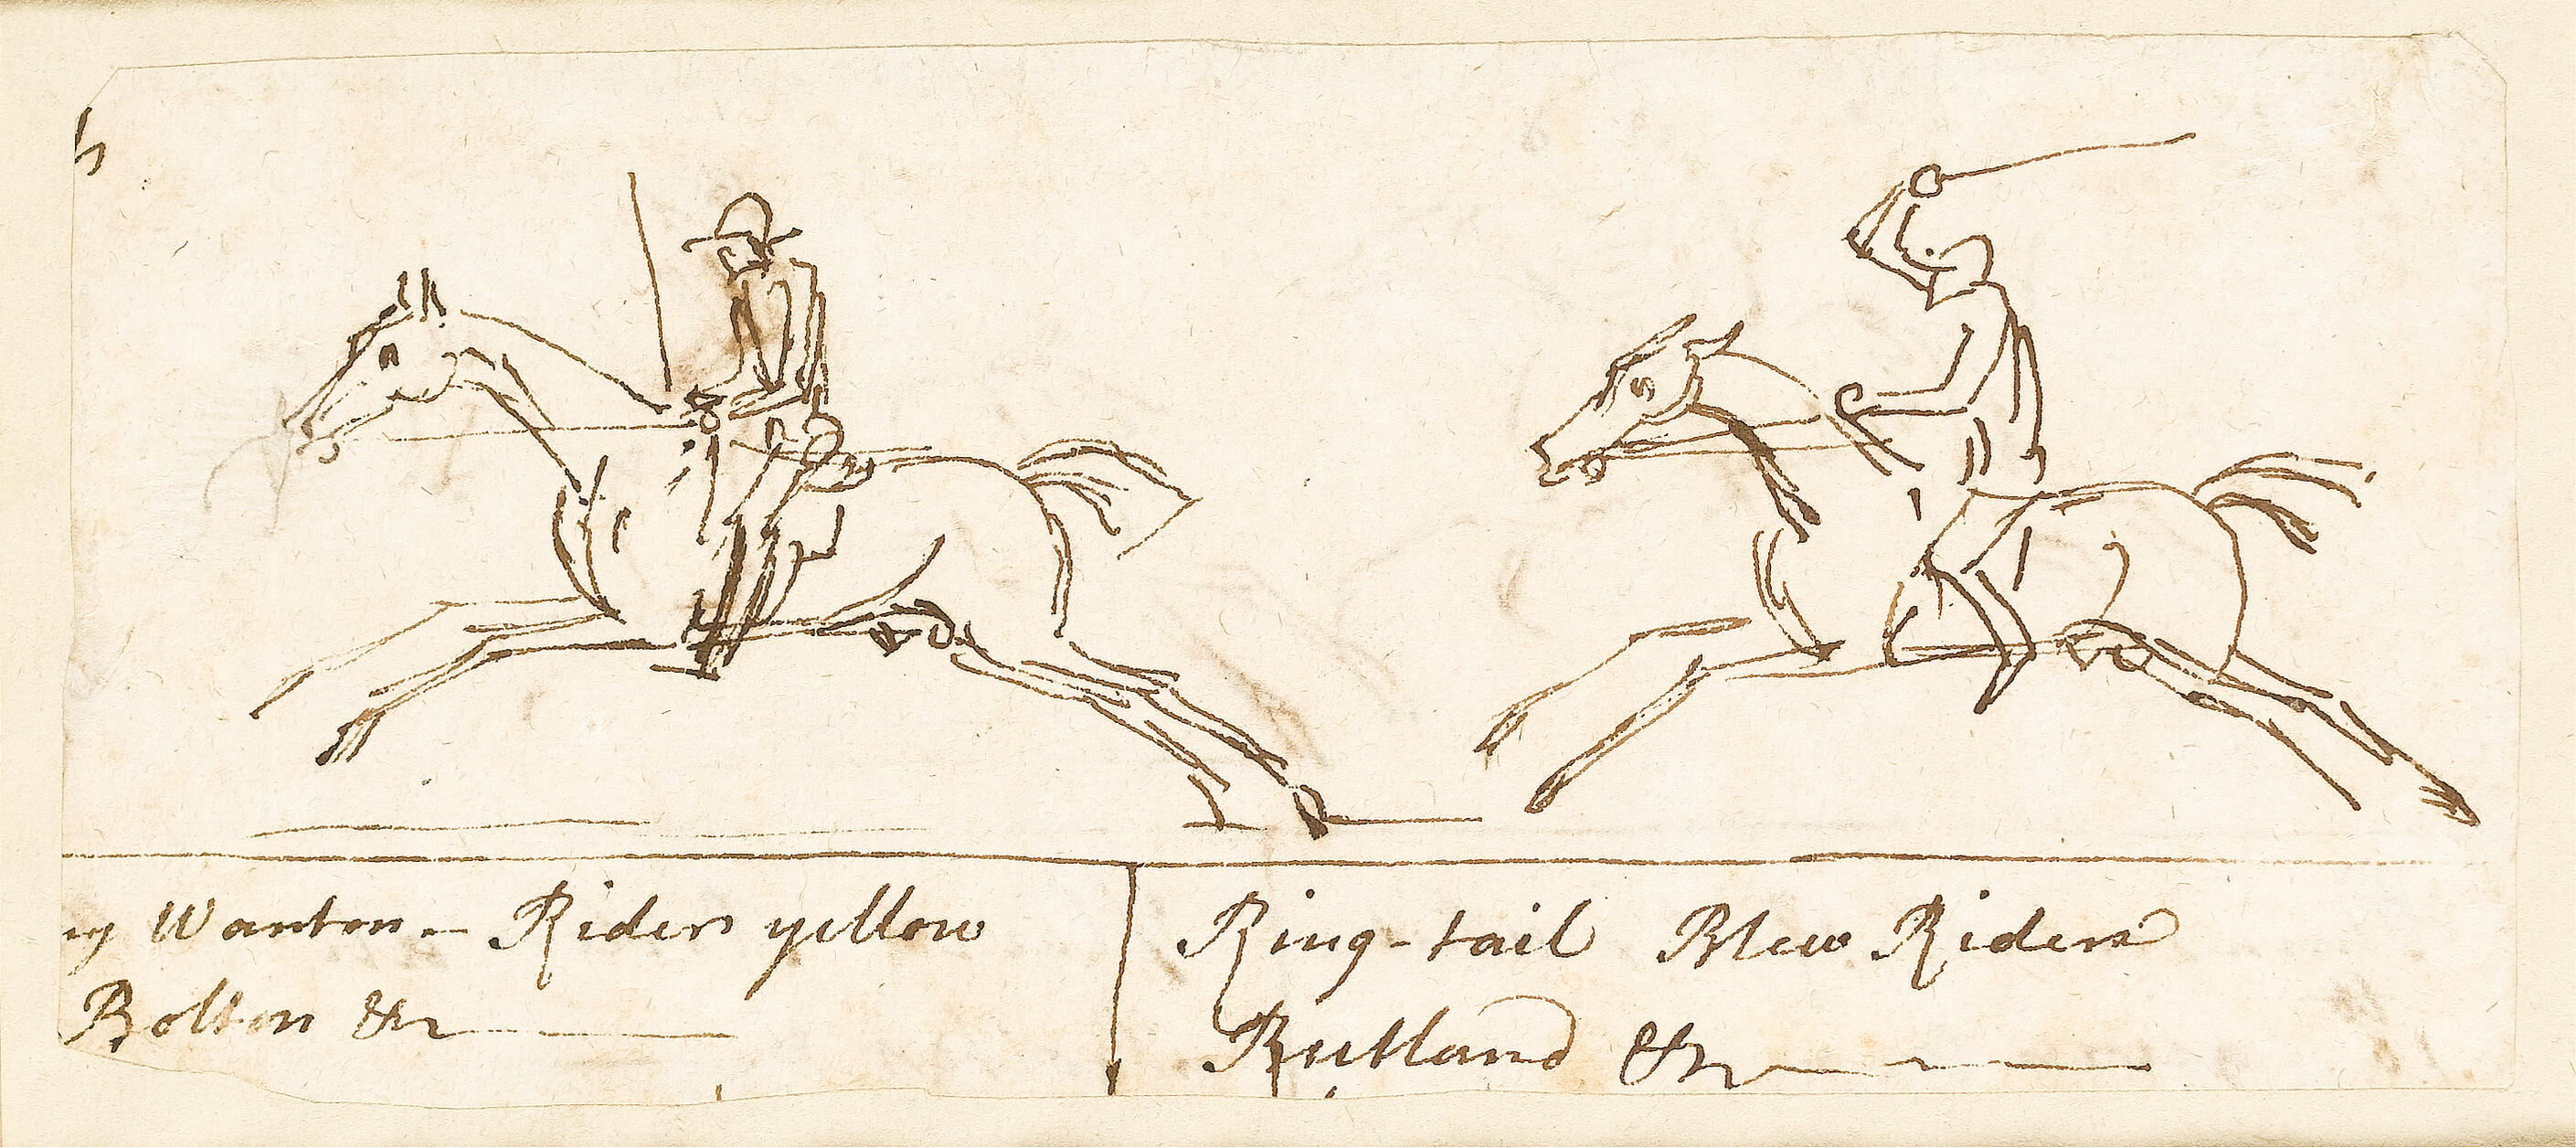 h
ry Wanton - Rider yellow
Bolton &c
Ring-tail Blew Rider
Rutland &c